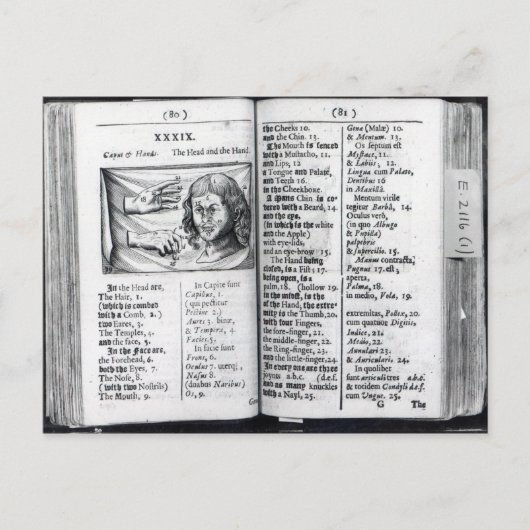 (80)
XXXIX.
Caput & Manus. The Head and the Hand.
In the Head are,
The Hair, 1.
(which is combed
with a Comb. 2.)
two Eares, 3.
The Temples, 4.
and the face, 5.
In the Face are,
the Forehead, 6.
both the Eyes, 7.
The Nose, 8.
(with two Nostrils)
The Mouth, 9.
In Capite sunt
Capillus. 1.
(qui pectitur
Pectine 2.)
Aures 3. binæ,
& Tempora, 4.
Facies 5.
In facie sunt
Frons, 6.
Oculus 7. uterq;
Nasus 8
(duabus Naribus)
Os, 9
(81)
the Cheeks 10.
and the Chin. 13.
The Mouth is fenced
with a Mustacho, 11.
and Lips; 12
a Tongue and Palate,
and Teeth 16.
in the Cheekbone.
A Mans Chin is co-
vered with a Beard, 14.
and the eye.
(in which is the white
and the Apple)
with eye-lids,
and an eye-brow 15.
The Hand being
closed, is a Fist; 17.
being open, is a
palm, 18. (hollow 19.
in the midst, is the
of the Hand, the extre-
mity is the Thumb, 20.
with four Fingers,
the fore-finger, 21.
the middle-finger, 22.
the Ring-finger, 23.
and the little-finger. 24.
In every one are three
joynts a.b.c. (d.e.f.
and as many knuckles
with a Nayl, 25.
Gena (Malæ) 10.
& Mentum. 13.
Os septum est
Mystace, 11.
& Labiis; 12.
Lingua cum Palato,
Dentibus 16
in Maxillâ.
Mentum virile
tegitur Barbâ, 14.
Oculus verò,
(in quo Albugo
& Pupilla)
palpebris
& supercilio. 15.
Manus contracta,
Pugnus 17. est;
aperta,
Palma, 18.
in medio, Vola, 19.
extremitas, Pollex, 20
cum quatuor Digitis,
Indice, 21.
Medio, 22.
Annulari 23.
& Auriculari. 24.
In quolibet
sunt articuli tres a.b.c.
& totidem Condyli d.e.f.
cum Ungue. 25.
G The
E.2116 (1)